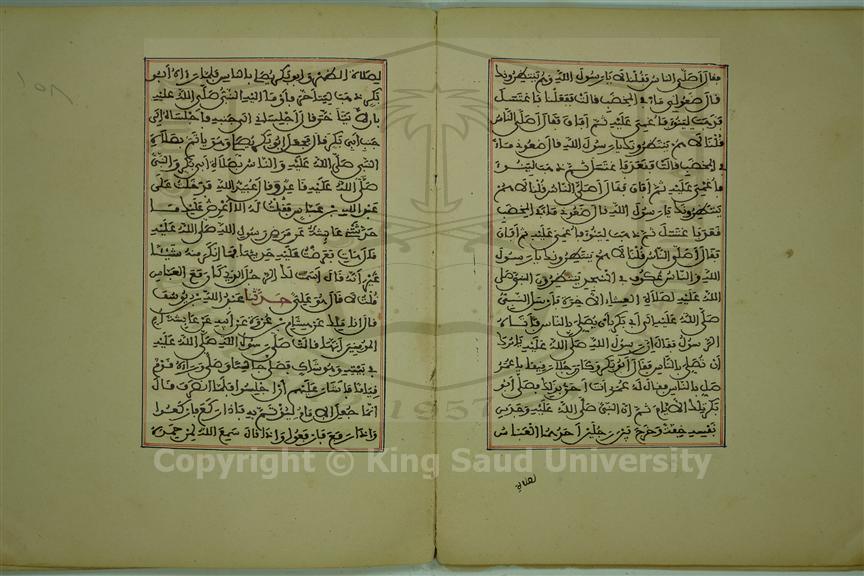 فقال أصلى الناس فقلنا لا يا رسول الله وهم ينتظرونك
قال ضعوا لي ماء في المخضب قالت ففعلنا فاغتسل
فذهب لينوء فأغمي عليه ثم أفاق فقال أصلى الناس
قلنا لا هم ينتظرونك يا رسول الله قال ضعوا لي ماء
في المخضب قالت فقعد فاغتسل ثم ذهب لينوء
فأغمي عليه ثم أفاق فقال أصلى الناس قلنا لا هم
ينتظرونك يا رسول الله قال ضعوا لي ماء في المخضب
فقعد فاغتسل ثم ذهب لينوء فأغمي عليه ثم أفاق
فقال أصلى الناس قلنا لا هم ينتظرونك يا رسول
الله والناس عكوف في المسجد ينتظرون النبي صلى
الله عليه لصلاة العشاء الآخرة فأرسل النبي
صلى الله عليه إلى أبي بكر بأن يصلي بالناس فأتاه
الرسول فقال إن رسول الله صلى الله عليه يأمرك
أن تصلي بالناس فقال أبو بكر وكان رجلا رقيقا يا عمر
صل بالناس فقال له عمر أنت أحق بذلك فصلى أبو
بكر تلك الأيام ثم إن النبي صلى الله عليه وجد من
نفسه خفة وخرج بين رجلين أحدهما العباس
لصلاة
لصلاة الظهر وأبو بكر يصلي بالناس فلما رآه أبو
بكر ذهب ليتأخر فأومأ إليه النبي صلى الله عليه
بأن لا يتأخر قال أجلساني إلى جنبه فأجلساه إلى
جنب أبي بكر قال فجعل أبو بكر يصلي وهو يأتم بصلاة
النبي صلى الله عليه والناس بصلاة أبي بكر والنبي
صلى الله عليه قاعد وقال عبيد الله فدخلت على
عبد الله بن عباس فقلت له ألا أعرض عليك ما
حدثتني عائشة عن مرض رسول الله صلى الله عليه
قال هات فعرضت عليه حديثها فما أنكر منه شيئا
غير أنه قال أسمت لك الرجل الذي كان مع العباس
قلت لا قال هو علي حدثنا عبد الله بن يوسف
قال أنا مالك عن هشام بن عروة عن أبيه عن عائشة أم
المؤمنين أنها قالت صلى رسول الله صلى الله عليه
في بيته وهو شاك فصلى جالسا وصلى وراءه قوم
قياما فأشار عليهم أن اجلسوا فلما انصرف قال
إنما جعل الإمام ليؤتم به فإذا ركع فاركعوا
وإذا رفع فارفعوا وإذا قال سمع الله لمن حمده
1957
Copyright © King Saud University